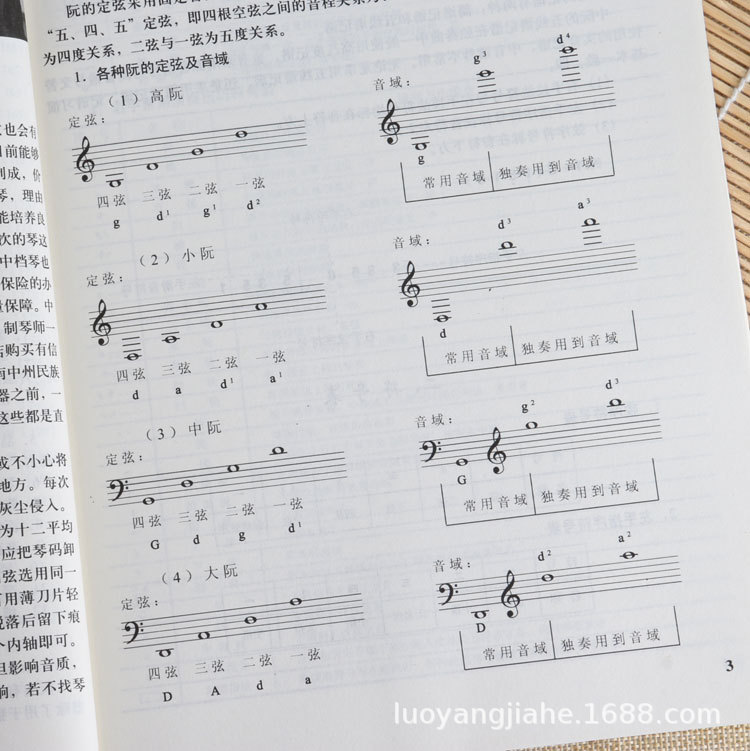 "五、四、五"定弦,即四根空弦之间的音程关系为
为四度关系,二弦与一弦为五度关系。
1. 各种阮的定弦及音域
(1)高阮
定弦:
四弦 三弦 二弦 一弦
g d¹ g¹ d²
音域:
g g³ d⁴
常用音域 独奏用到音域
(2)小阮
定弦:
四弦 三弦 二弦 一弦
d a d¹ a¹
音域:
d d³ a³
常用音域 独奏用到音域
(3)中阮
定弦:
四弦 三弦 二弦 一弦
G d g d¹
音域:
G g² d³
常用音域 独奏用到音域
(4)大阮
定弦:
四弦 三弦 二弦 一弦
D A d a
音域:
D d² a²
常用音域 独奏用到音域
3
也会有
目前能够
制成,价
琴,理由
能培养良
次的琴这
中档琴也
保险的办
保障。中
制琴师一
购买有信
中州民族
器之前,一
这些都是直
或不小心将
地方。每次
灰尘侵入。
为十二平均
应把琴码卸
弦选用同一
用薄刀片轻
脱落后留下痕
个内轴即可。
但影响音质,
响,若不找琴
luoyangjiahe.1688.com